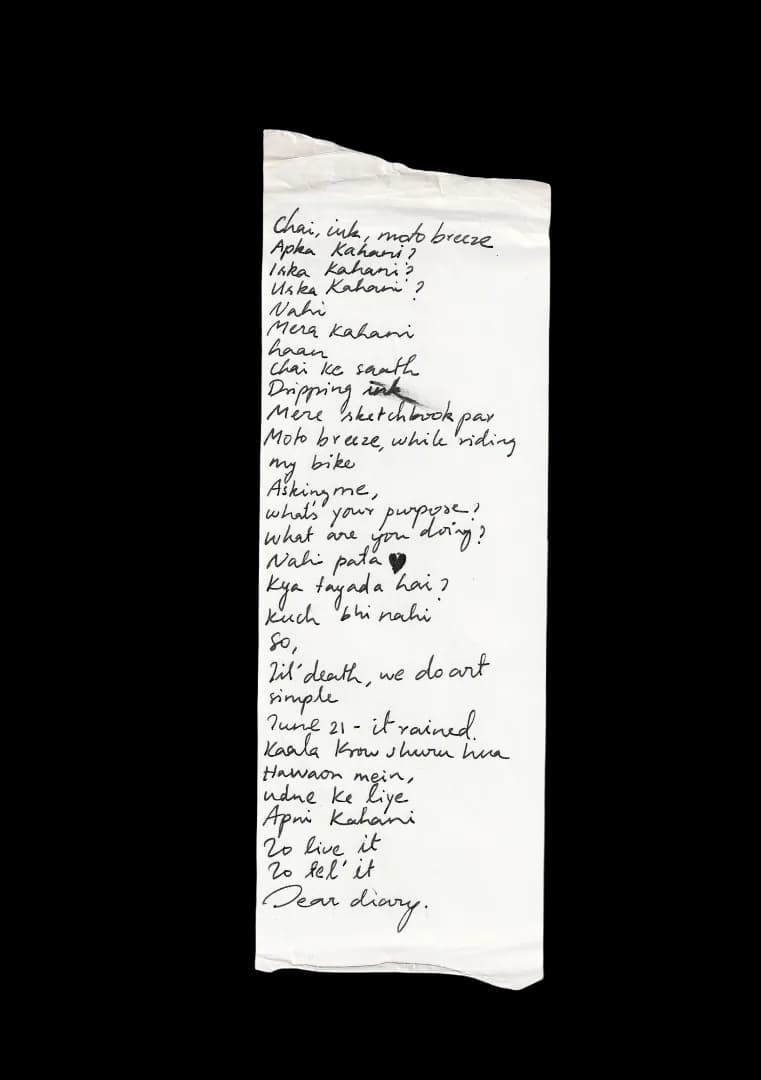 Chai, ink, moto breeze
Apka Kahani?
Iska Kahani?
Uska Kahani?
Nahi
Mera Kahani
haan
Chai ke saath
Dripping ink
Mere sketchbook par
Moto breeze, while riding
my bike
Asking me,
what's your purpose?
What are you doing?
Nahi pata ♥
Kya fayada hai?
kuch bhi nahi
So,
Til' death, we do art
simple
June 21 - it rained.
Kaala Krow shuru hua
Hawaon mein,
udne ke liye
Apni Kahani
To live it
To tel' it
Dear diary.